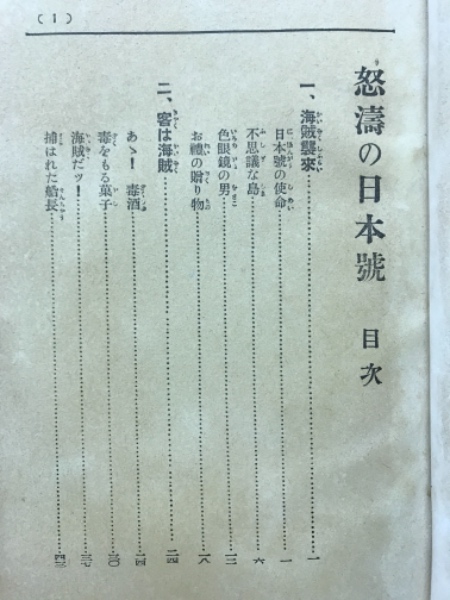 (1)
怒濤の日本號 目次
一、海賊襲來 一
日本號の使命 一
不思議な島 六
色眼鏡の男 一二
お禮の贈り物 一八
二、客は海賊 二四
あゝ! 毒酒 二四
毒をもる菓子 三〇
海賊だッ! 三七
捕はれた船長 四三